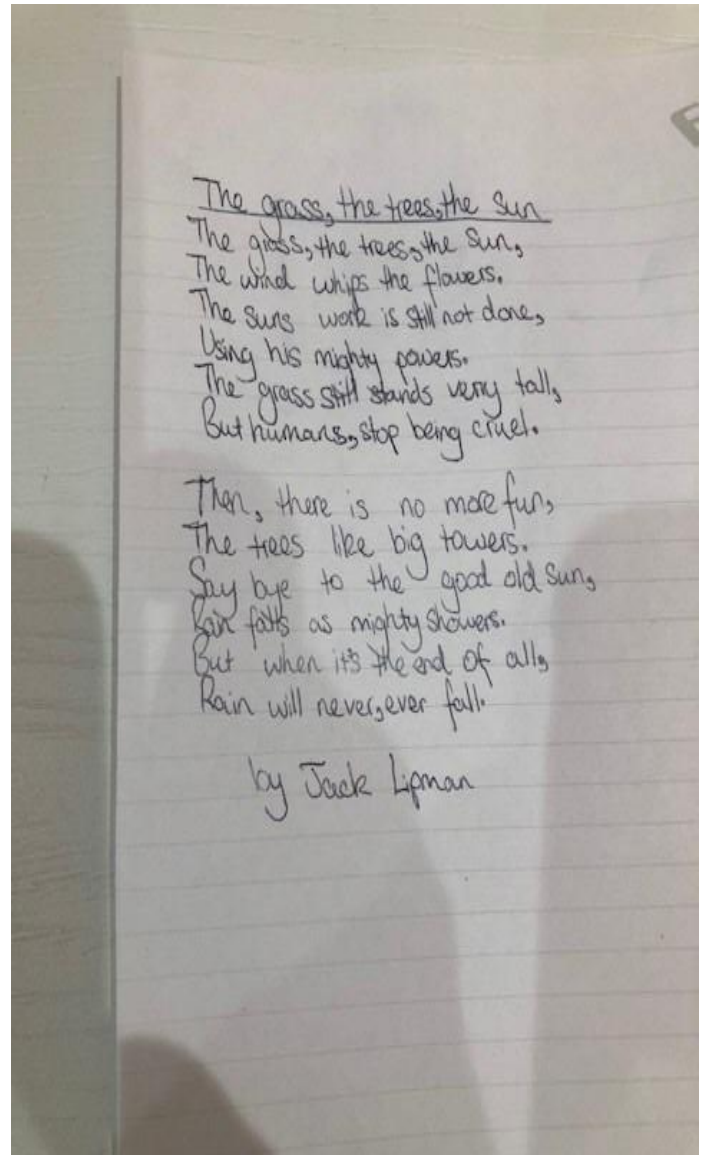 The grass, the trees, the Sun
The grass, the trees, the Sun,
The wind whips the flowers.
The suns work is still not done,
Using his mighty powers.
The grass still stands very tall,
But humans, stop being cruel.
Then, there is no more fun,
The trees like big towers.
Say bye to the good old Sun,
Rain falls as mighty showers.
But when it's the end of all,
Rain will never, ever fall.
by Jack Lipman